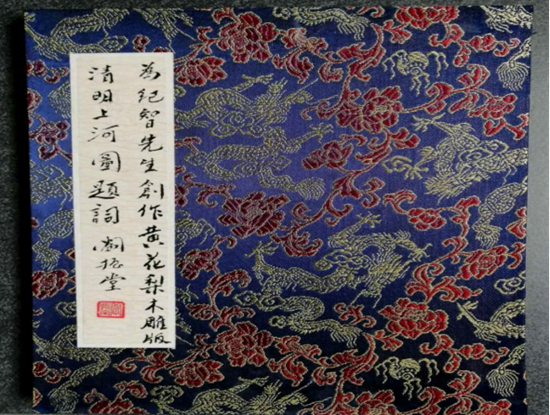 為紀智先生創作黄花梨木雕版
清明上河圖題詞 阎振堂